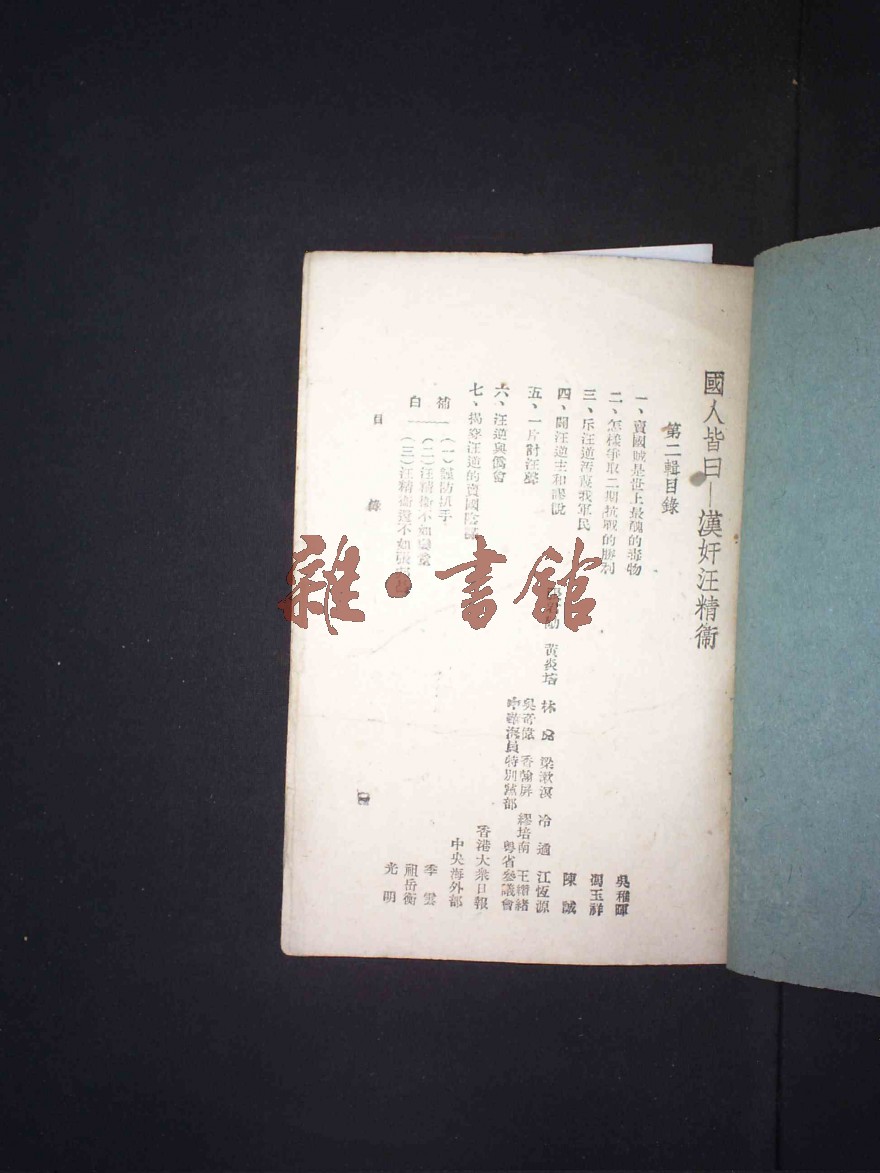 國人皆曰—漢奸汪精衞
第二輯目錄
一、賣國賊是世上最醜的毒物 吳稚暉
二、怎樣爭取二期抗戰的勝利 馮玉祥
三、斥汪逆污衊我軍民 陳誠
四、闢汪逆主和謬説 黃炎培 林 梁漱溟 冷遹 江恆源
五、一片討汪聲 吳奇偉 香翰屏 繆培南 王纘緒
中華海員特別黨部 粵省參議會
六、汪逆與僞會 香港大衆日報
七、揭穿汪逆的賣國陰謀 中央海外部
補白
(一)謹防扒手 季雲
(二)汪精衞不如 祖岳衡
(三)汪精衞還不如 光明
目錄
雜·書館